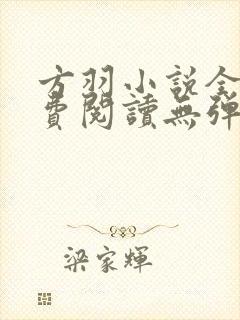 方羽小說全
費閱讀無彈
梁家輝